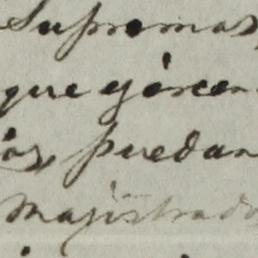 Supremas,
que ejercen
ias, puedan
Magistrado